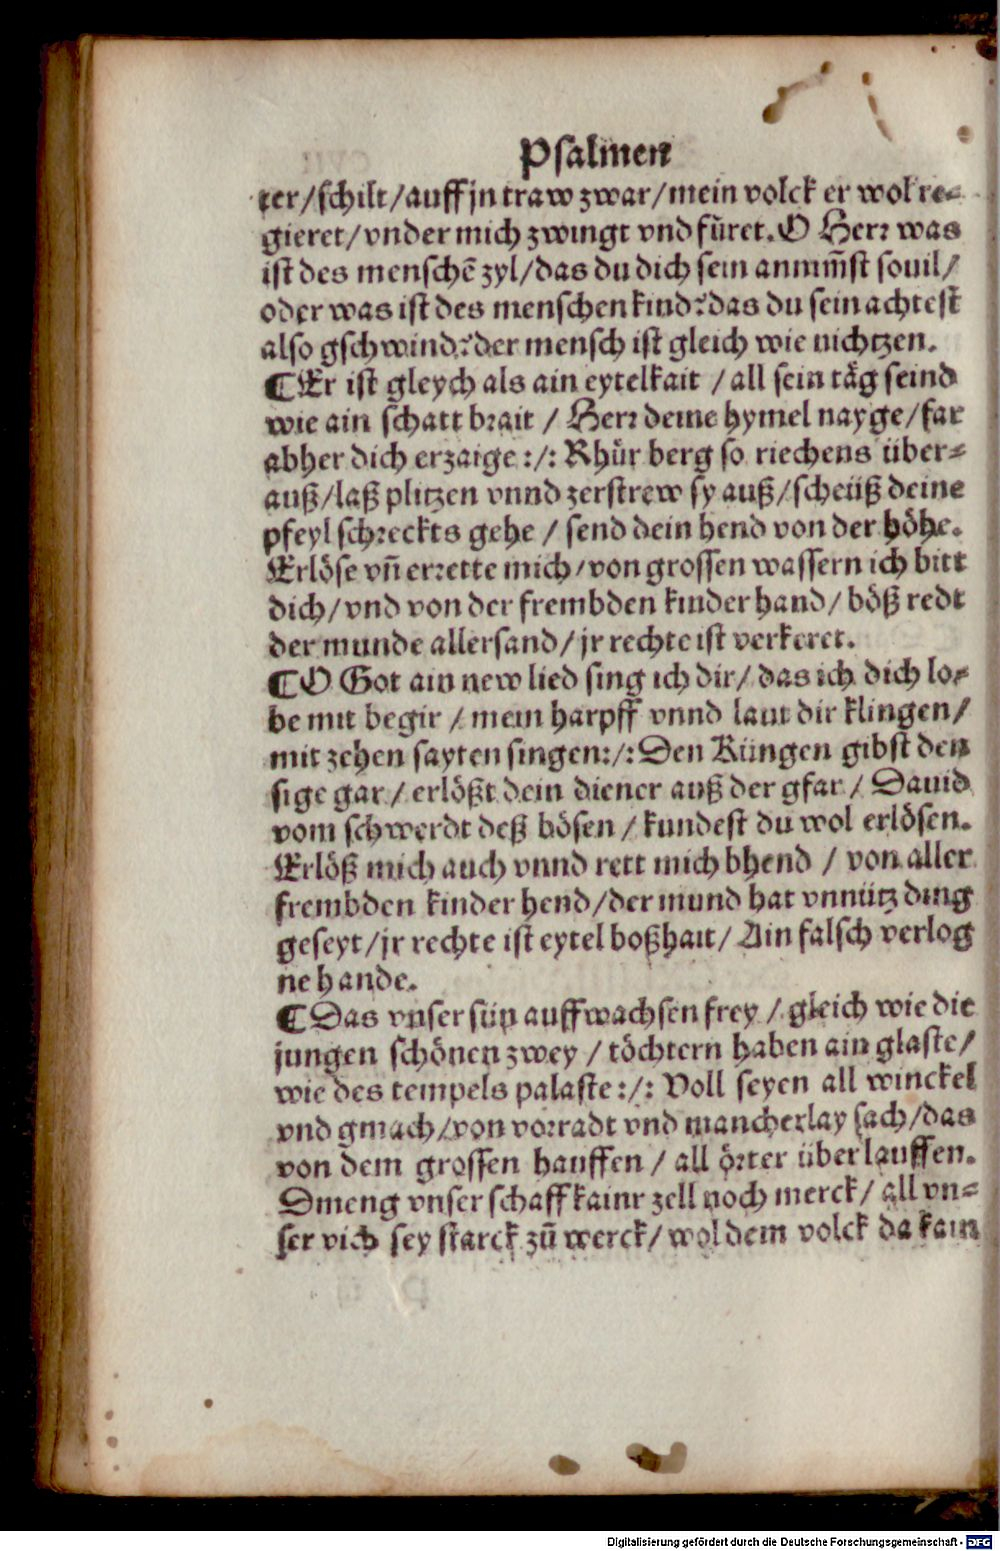 Psalmen
ter/schilt/auff jn traw zwar/mein volck er wol re-
gieret/vnder mich zwingt vnd fůret. O Herr was
ist des menschē zyl/das du dich sein annim̄st souil/
oder was ist des menschen kind? das du sein achtest
also gschwind? der mensch ist gleich wie nichtzen.
¶Er ist gleych als ain eytelkait /all sein täg seind
wie ain schatt brait / Herr deine hymel nayge/far
abher dich erzaige :/: Rhür berg so riechens über-
auß/laß plitzen vnnd zerstrew sy auß/scheüß deine
pfeyl schreckts gehe / send dein hend von der höhe.
Erlöse vn̄ errette mich/von grossen wassern ich bitt
dich/vnd von der frembden kinder hand/böß redt
der munde allersand/jr rechte ist verkeret.
¶O Got ain new lied sing ich dir/das ich dich lo-
be mit begir /mein harpff vnnd laut dir klingen/
mit zehen sayten singen:/: Den Küngen gibst den
sige gar/erlößt dein diener auß der gfar/ Dauid
vom schwerdt deß bösen /kundest du wol erlösen.
Erlöß mich auch vnnd rett mich bhend / von aller
frembden kinder hend/der mund hat vnnütz ding
geseyt/jr rechte ist eytel boßhait/ Ain falsch verlog
ne hande.
¶Das vnser sün auffwachsen frey /gleich wie die
jungen schönen zwey /töchtern haben ain glaste/
wie des tempels palaste:/: Voll seyen all winckel
vnd gmach/von vorradt vnd mancherlay sach/das
von dem grossen hauffen / all örter überlauffen.
Dmeng vnser schaff kainr zell noch merck/ all vn-
ser vich sey starck zū werck/wol dem volck da kain
Digitalisierung gefördert durch die Deutsche Forschungsgemeinschaft - DFG